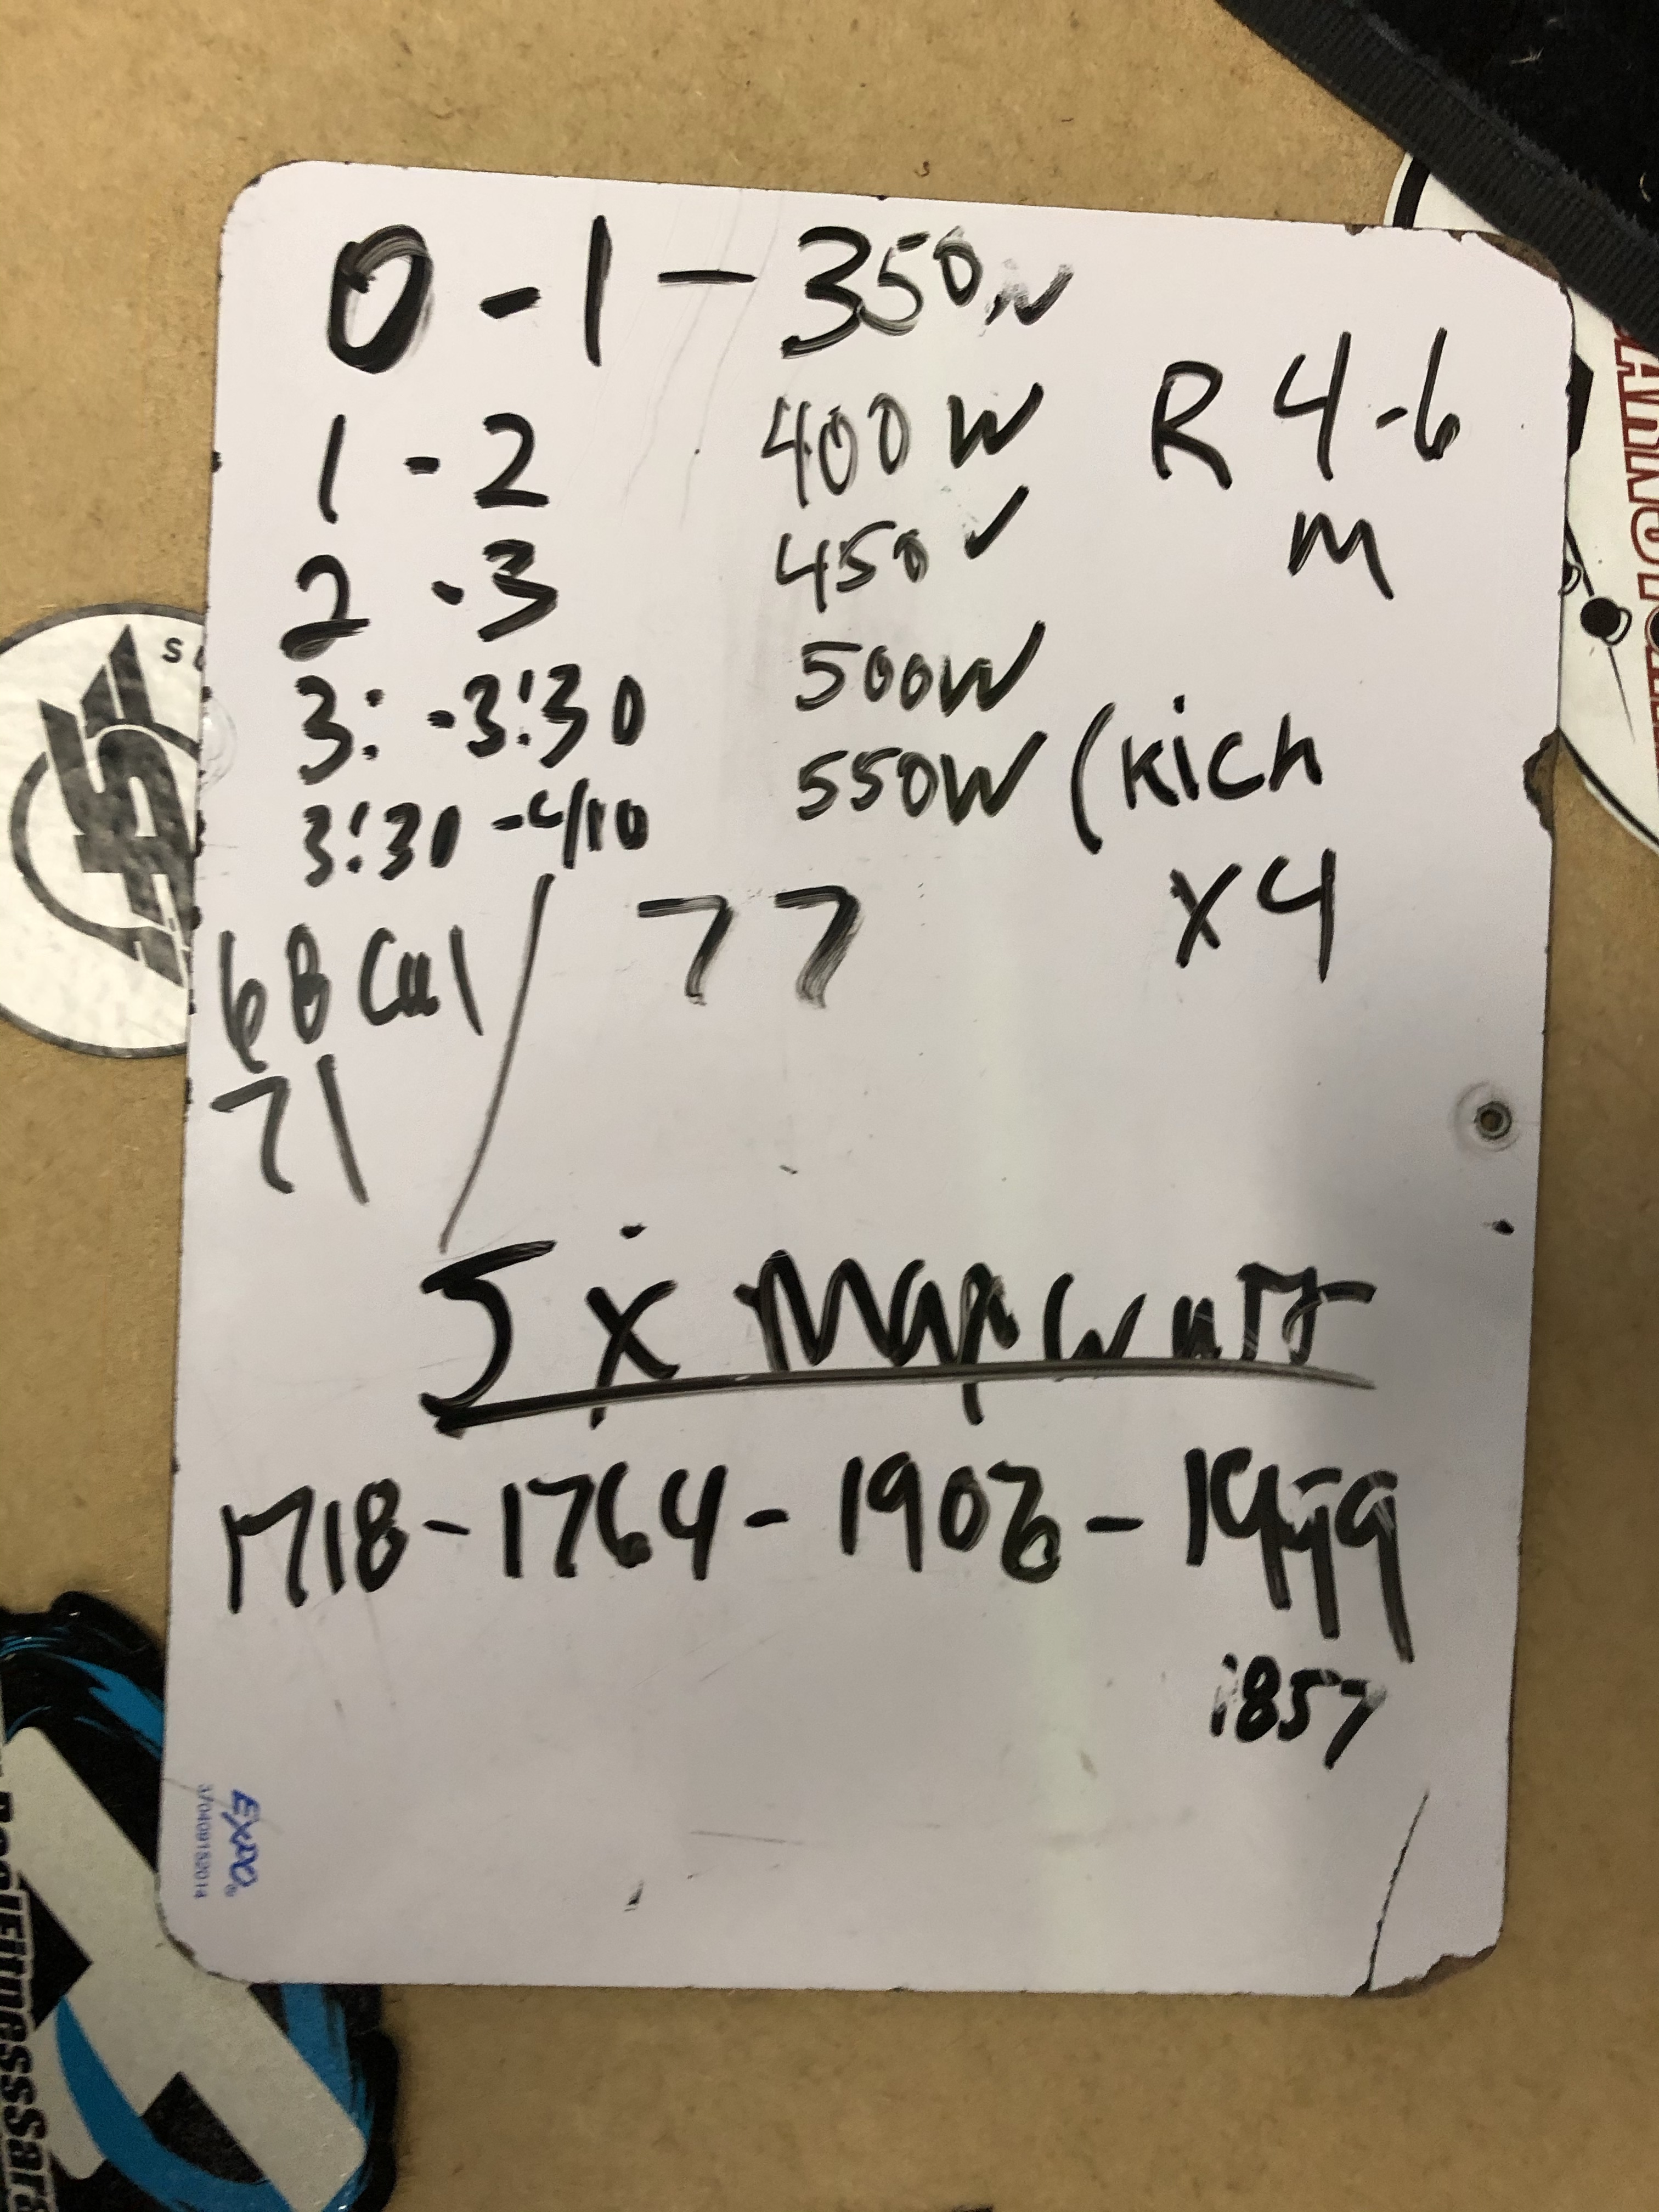 0 - 1 - 350W
1 - 2 400W R 4-6
2 - 3 450 M
3: - 3:30 500W
3:30 - 4/10 550W (Kich
68 Cal / 77 X4
71
5 x Map watt
1718 - 1764 - 1906 - 1999
1857
EXPO